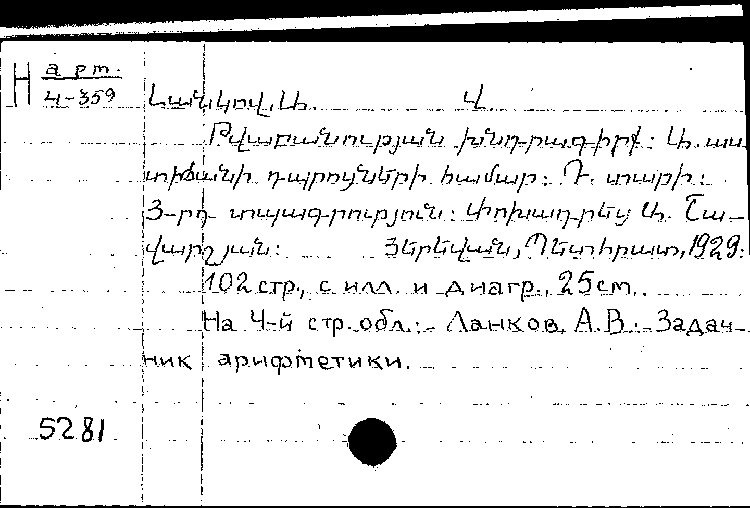 Н арт.
4-359
Լանկով, Ա. Վ.
Թվաբանության խնդրագիրք: Ա. աս-
տիճանի դպրոցների համար: Դ. տարի:
3-րդ տպագրություն: Փոխադրեց Ա. Շա-
վարշյան: Յերեվան, Պետհրատ, 1929.
102 стр., с илл. и диагр., 25 cm.
На 4-й стр. обл.: Ланков, А. В. Задач-
ник арифметики.
5281